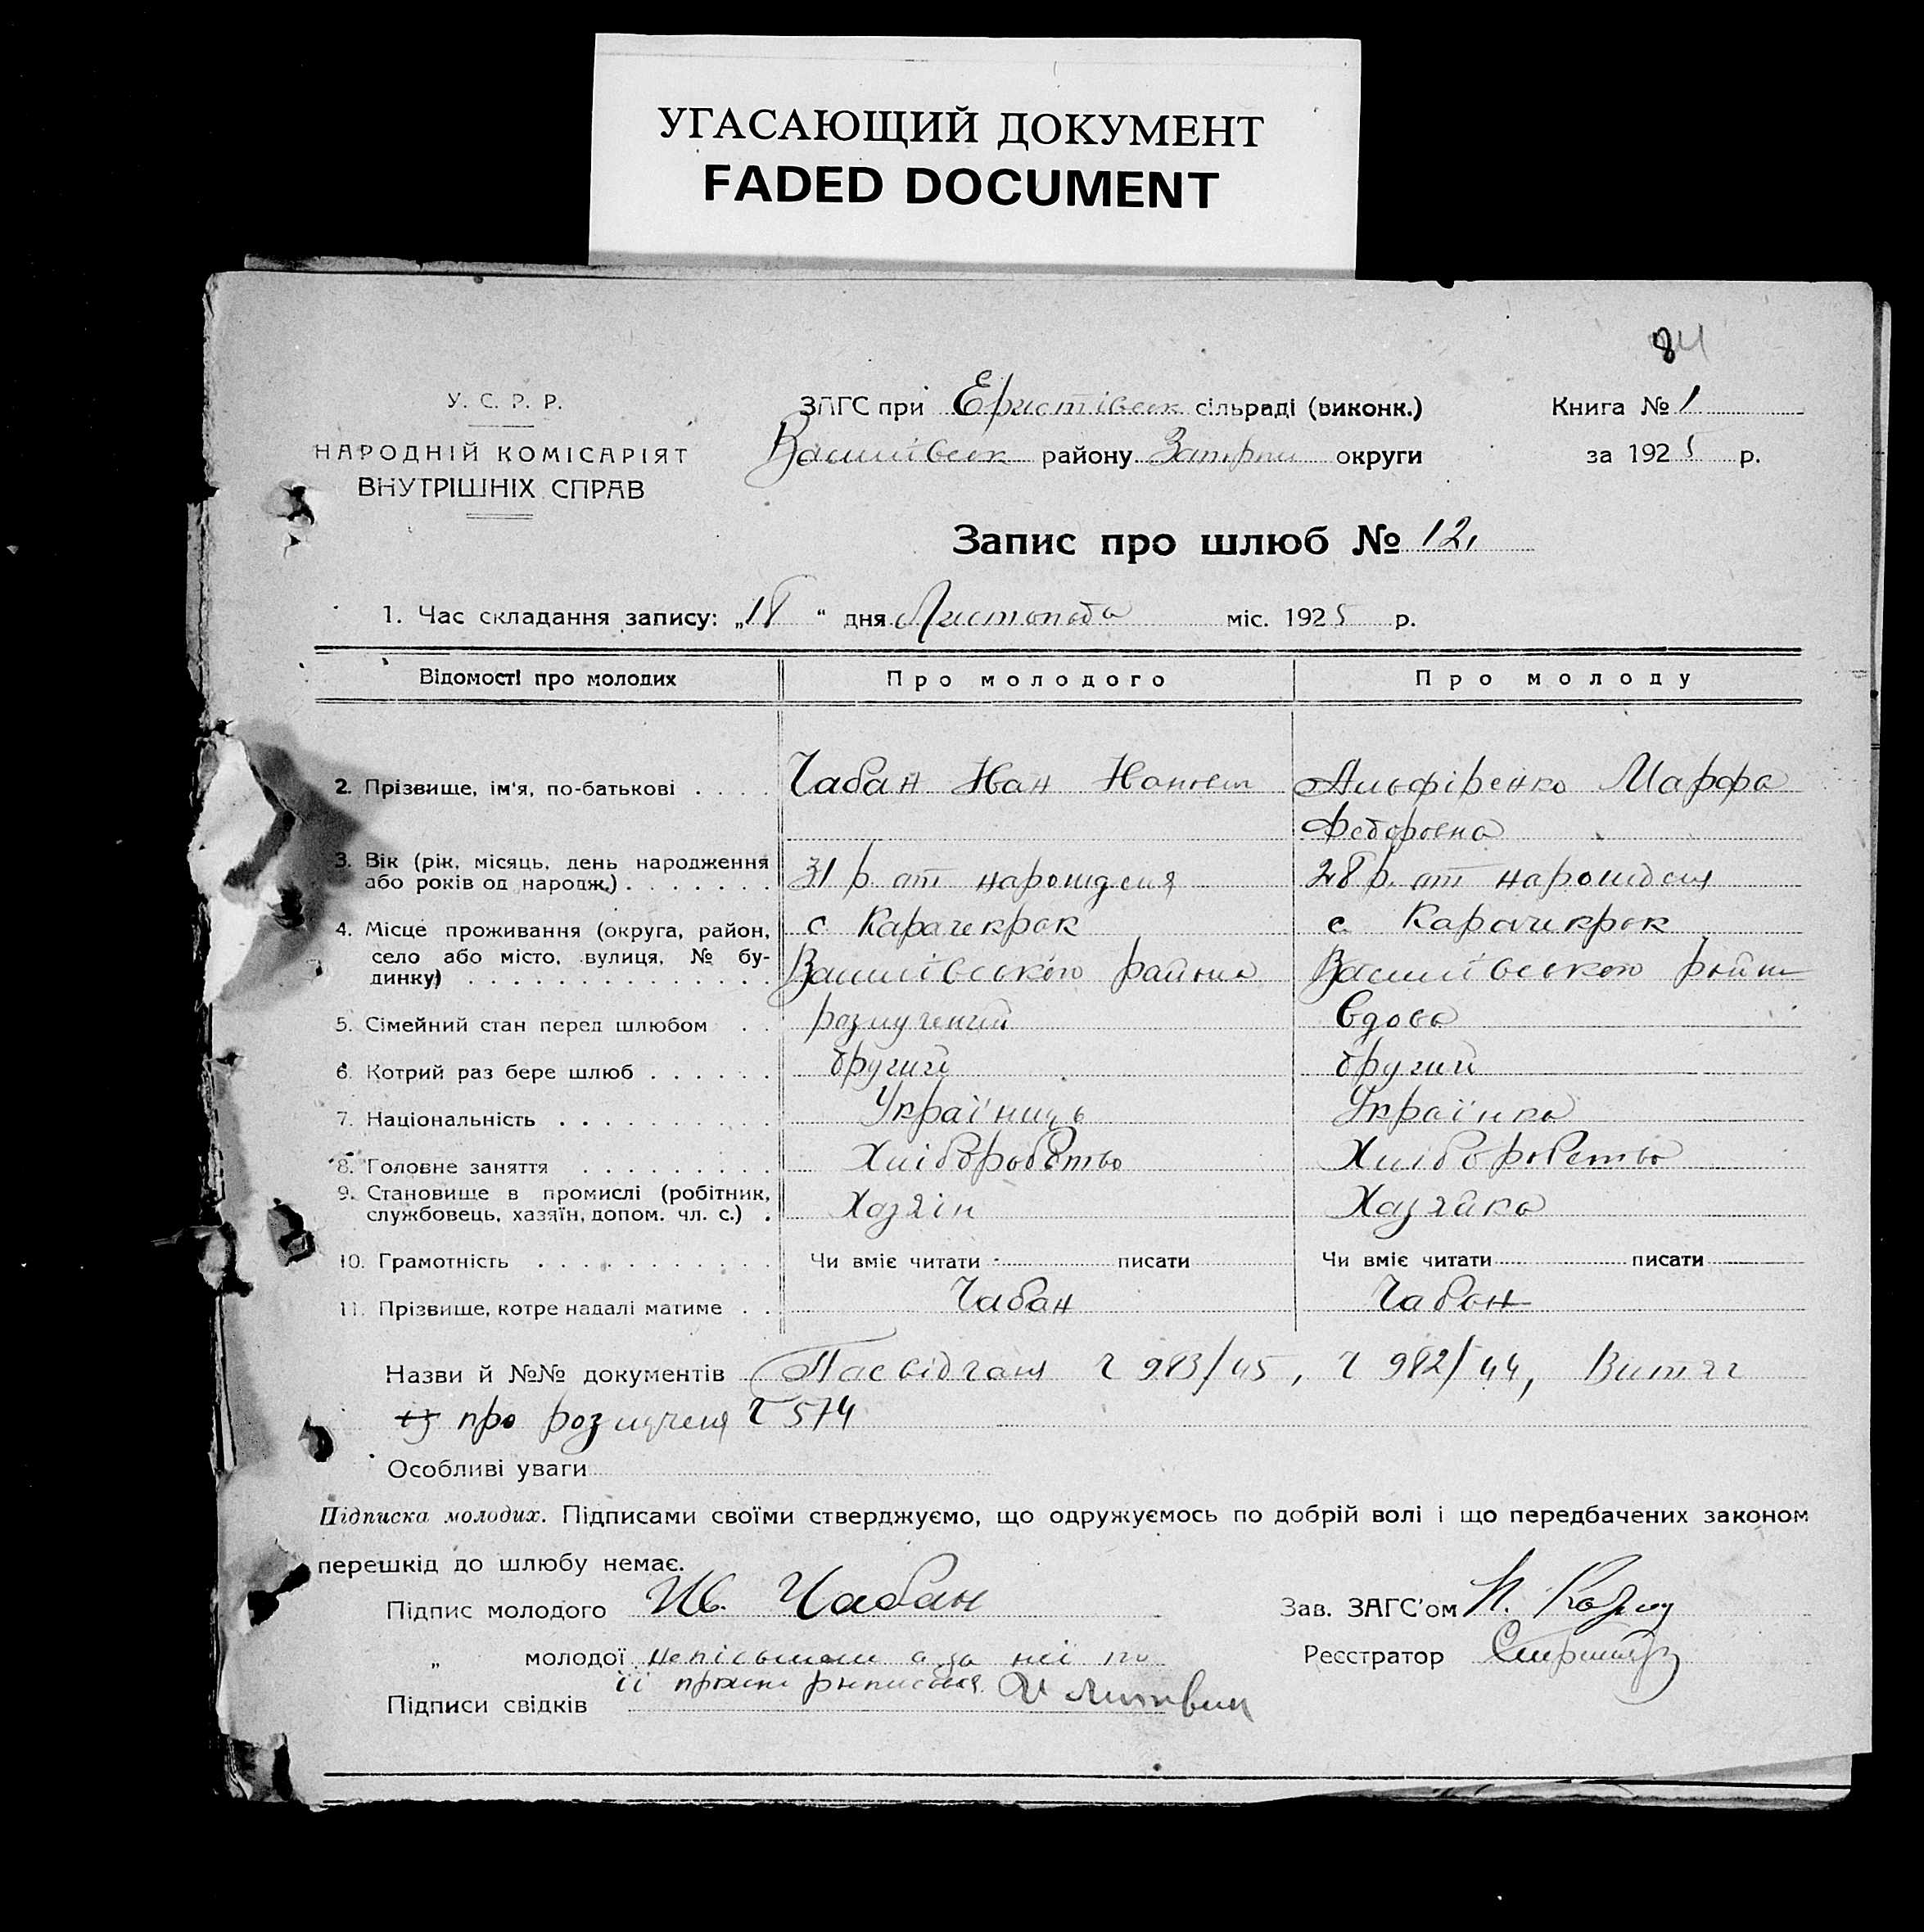 УГАСАЮЩИЙ ДОКУМЕНТ
FADED DOCUMENT
84
У. С. Р. Р.
НАРОДНІЙ КОМІСАРІЯТ
ВНУТРІШНІХ СПРАВ
ЗАГС при Еристівськ сільраді (виконк.)
Василівськ району Запоріж округи
Книга № 1
за 1925 р.
Запис про шлюб № 12,
1. Час складання запису: „18 “ дня Листопода міс. 1925 р.
Відомості про молодих Про молодого Про молоду
2. Прізвище, ім'я, по-батькові . . . . Чабан Иван Альфіренко Марфа
Федоровна
3. Вік (рік, місяць, день народження
або років од народж.) . . . . . . . 31 р. от нарождения 28 р. от нарождения
4. Місце проживання (округа, район,
село або місто, вулиця, № бу-
динку) . . . . . . . . . . . . . .
с Карачекрак с Карачекрак
Василівського района Василівського район
5. Сімейний стан перед шлюбом . . розлучений Вдова
6. Котрий раз бере шлюб . . . . . . другий другий
7. Національність . . . . . . . . . . Україниць Українка
8. Головне заняття . . . . . . . . . Хліборобство Хліборобство
9. Становище в промислі (робітник,
службовець, хазяїн, допом. чл. с.) . Хазяін Хазяйка
10. Грамотність . . . . . . . . . . . Чи вміє читати писати Чи вміє читати писати
11. Прізвище, котре надалі матиме . . Чабан Чабан
Назви й №№ документів Посвідчання ч 983/45, ч 982/44, Витяг
про розлученя ч 574
Особливі уваги
Підписка молодих. Підписами своїми стверджуємо, що одружуємось по добрій волі і що передбачених законом
перешкід до шлюбу немає.
Підпис молодого Ив. Чабан
Зав. ЗАГС'ом
„ молодої неписьмена а за неї по
Реєстратор
її прозьбі росписався Литвин
Підписи свідків